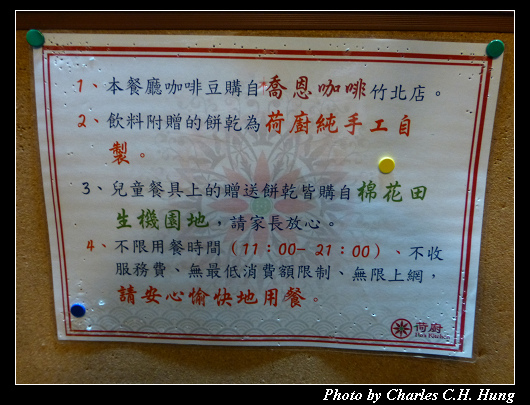 1、本餐廳咖啡豆購自喬恩咖啡竹北店。
2、飲料附贈的餅乾為荷廚純手工自
製。
3、兒童餐具上的贈送餅乾皆購自棉花田
生機園地，請家長放心。
4、不限用餐時間（11：00-21：00）、不收
服務費、無最低消費額限制、無限上網，
請安心愉快地用餐。
荷廚
Ho's Kitchen
Photo by Charles C.H. Hung